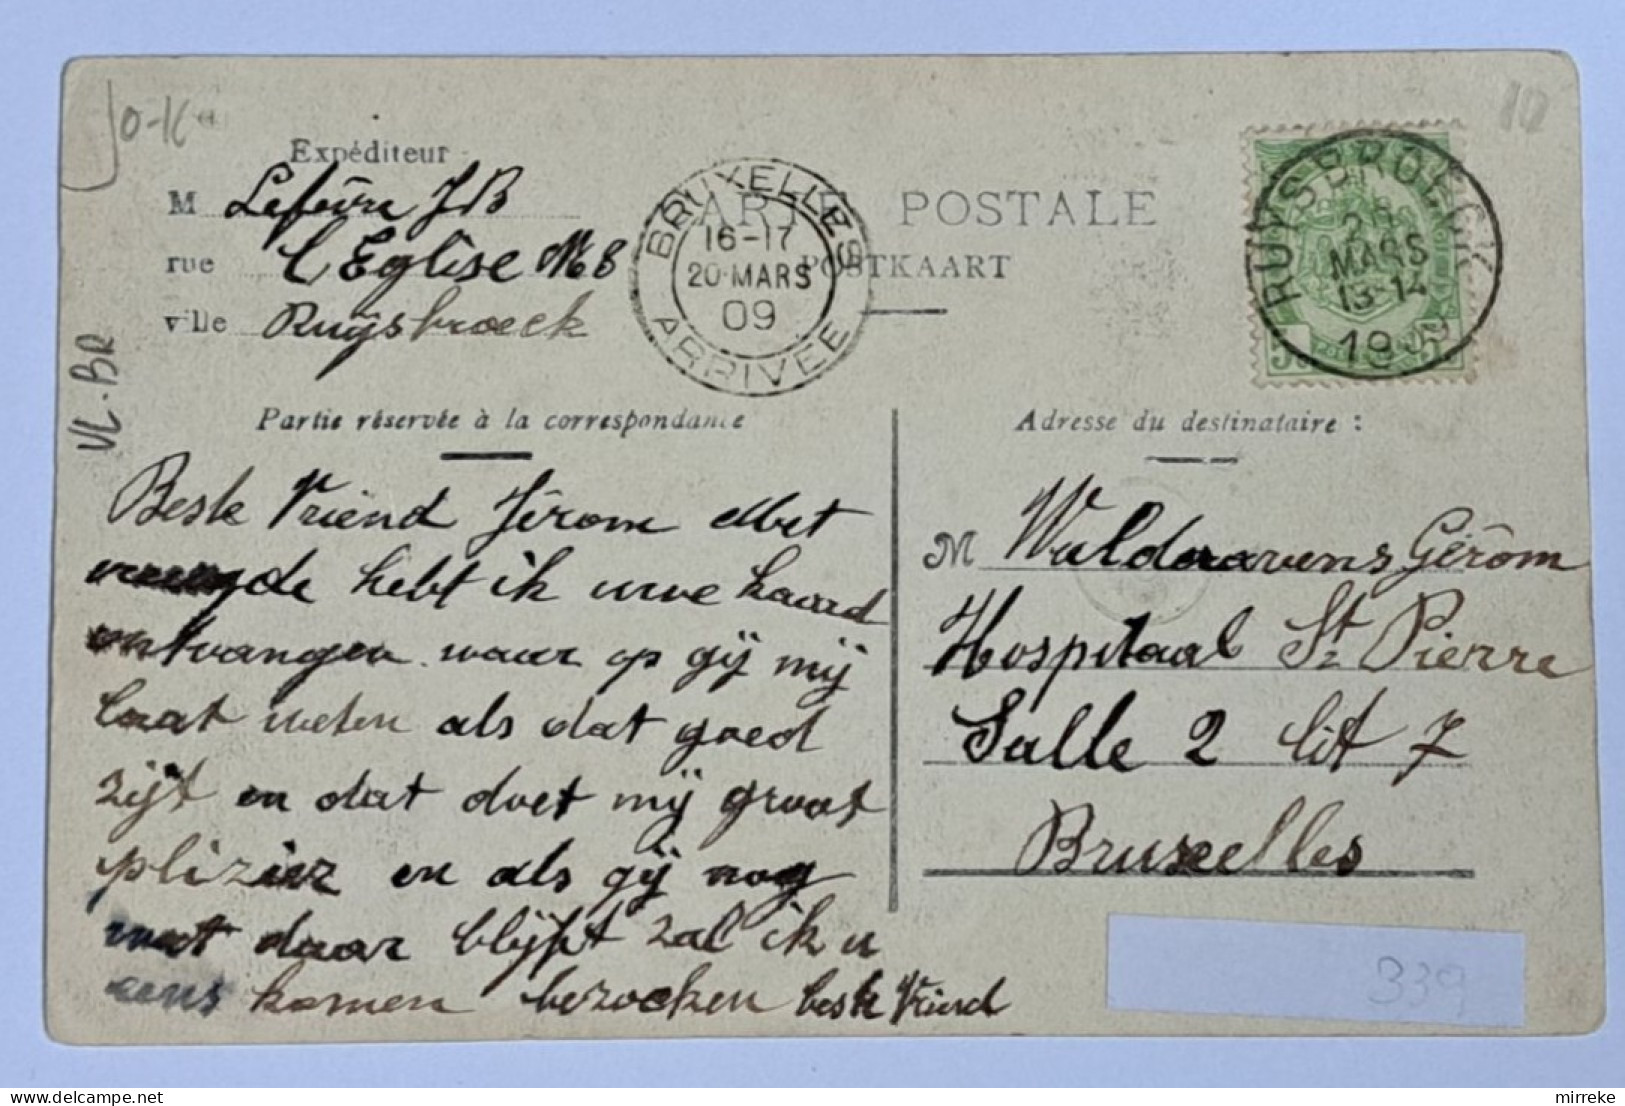 Jo-K
10
Expéditeur
M Lefèvre JB
rue l'Eglise No 8
ville Ruijsbroeck
BRUXELLES
16-17
20 MARS
09
ARRIVEE
CARTE POSTALE
POSTKAART
RUYSBROECK
MARS
13-14
1909
VL. BR
Partie réservée à la correspondance
Adresse du destinataire :
Beste Vriend Jêrom Met
vreugde hebt ik uwe kaard
ontvangen waar op gij mij
laat weten als dat goed
zijt en dat doet mij groot
plizier en als gij nog
wat daar blijft zal ik u
eens komen bezoeken beste Vriend
M Walderavens Gérôm
Hospitaal St Pierre
Salle 2 lit 7
Bruxelles
339
mirreke
delcampe.net